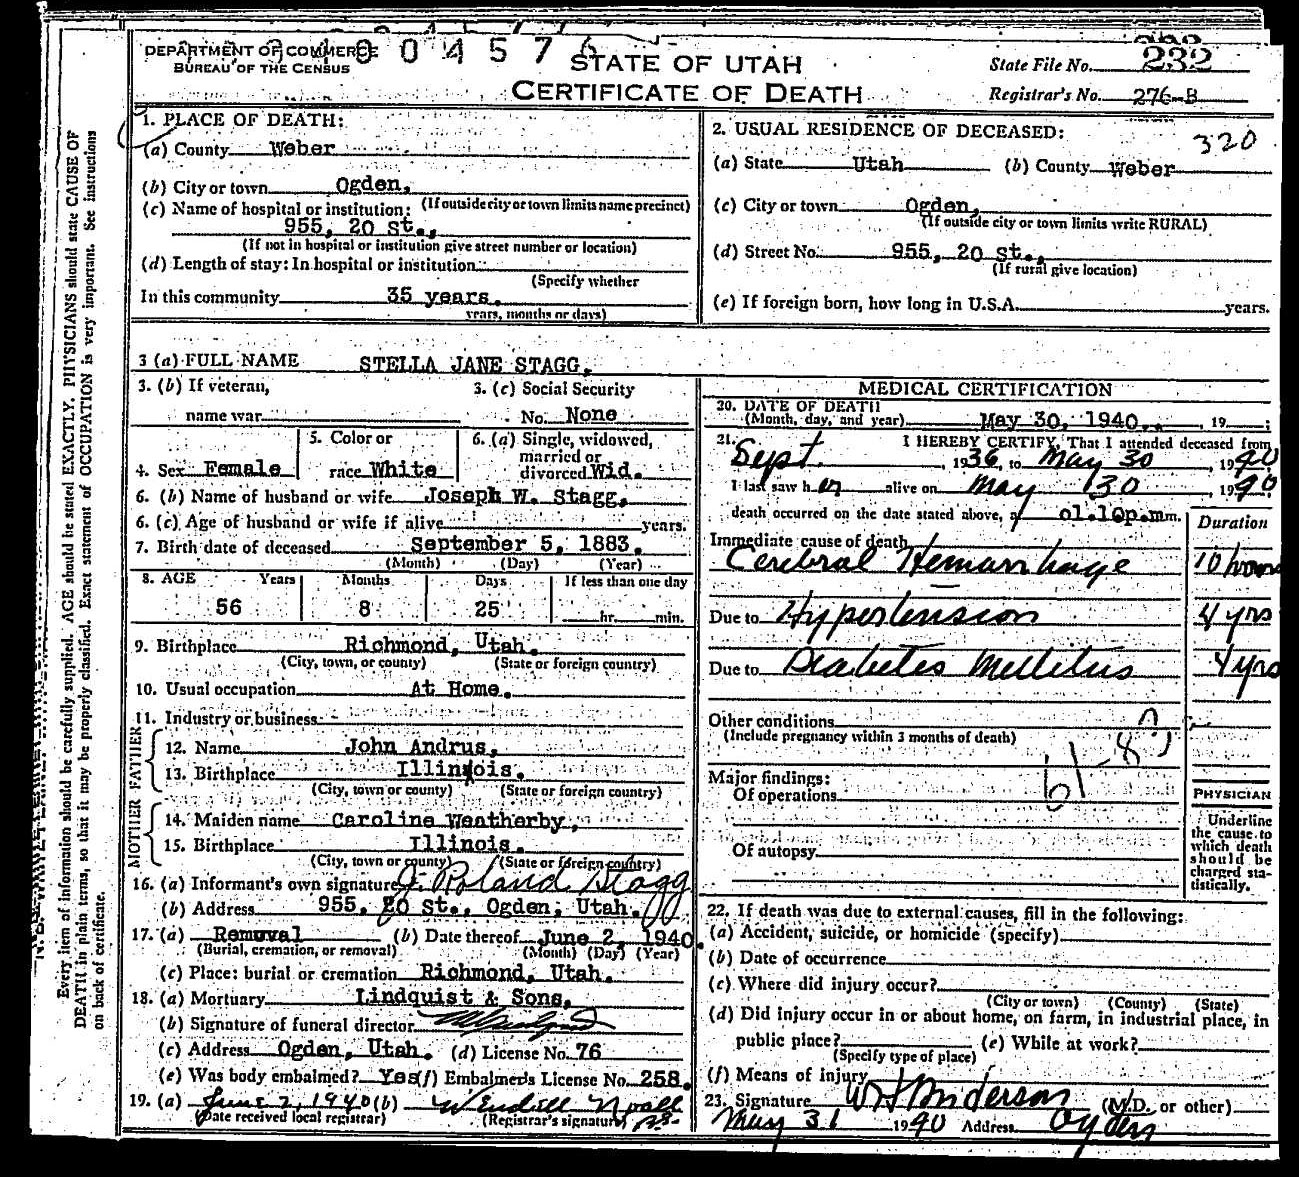 DEPARTMENT OF COMMERCE
BUREAU OF THE CENSUS
4004576
STATE OF UTAH
CERTIFICATE OF DEATH
State File No. 232
Registrar's No. 276-B
1. PLACE OF DEATH:
(a) County Weber
(b) City or town Ogden,
(If outside city or town limits name precinct)
(c) Name of hospital or institution:
955, 20 St.,
(If not in hospital or institution give street number or location)
(d) Length of stay: In hospital or institution
(Specify whether
In this community 35 years.
years, months or days)
2. USUAL RESIDENCE OF DECEASED:
320
(a) State Utah (b) County Weber
(c) City or town Ogden,
(If outside city or town limits write RURAL)
(d) Street No. 955, 20 St.,
(If rural give location)
(e) If foreign born, how long in U.S.A. years.
3 (a) FULL NAME STELLA JANE STAGG.
3. (b) If veteran,
name war
3. (c) Social Security
No. None
4. Sex Female
5. Color or
race White
6. (a) Single, widowed,
married or
divorced Wid.
6. (b) Name of husband or wife Joseph W. Stagg.
6. (c) Age of husband or wife if alive years.
7. Birth date of deceased September 5, 1883.
(Month) (Day) (Year)
8. AGE Years Months Days If less than one day
56 8 25 hr. min.
9. Birthplace Richmond, Utah.
(City, town, or county) (State or foreign country)
10. Usual occupation At Home.
11. Industry or business -
FATHER
12. Name John Andrus.
13. Birthplace Illinois.
(City, town or county) (State or foreign country)
MOTHER
14. Maiden name Caroline Weatherby,
15. Birthplace Illinois.
(City, town or county) (State or foreign country)
16. (a) Informant's own signature J. Roland Stagg
(b) Address 955, 20 St., Ogden, Utah.
17. (a) Removal (b) Date thereof June 2, 1940.
(Burial, cremation, or removal) (Month) (Day) (Year)
(c) Place: burial or cremation Richmond, Utah.
18. (a) Mortuary Lindquist & Sons.
(b) Signature of funeral director
(c) Address Ogden, Utah. (d) License No. 76
(e) Was body embalmed? Yes (f) Embalmer's License No. 258.
19. (a) June 2, 1940 (b)
(Date received local registrar) (Registrar's signature)
MEDICAL CERTIFICATION
20. DATE OF DEATH
(Month, day, and year) May 30, 1940., 19 ;
21. I HEREBY CERTIFY, That I attended deceased from
Sept. , 1936, to May 30 , 1940
I last saw her alive on May 30 , 1940
death occurred on the date stated above, at o1.10p.m m.
Duration
Immediate cause of death
Cerebral Hemarrhage 10 hours
Due to Hypertension 4 yrs
Due to Diabetes Mellitus 4 yrs
Other conditions
(Include pregnancy within 3 months of death)
61
Major findings:
Of operations
Of autopsy
PHYSICIAN
Underline
the cause to
which death
should be
charged sta-
tistically.
22. If death was due to external causes, fill in the following:
(a) Accident, suicide, or homicide (specify)
(b) Date of occurrence
(c) Where did injury occur?
(City or town) (County) (State)
(d) Did injury occur in or about home, on farm, in industrial place, in
public place? (e) While at work?
(Specify type of place)
(f) Means of injury
23. Signature W H Anderson (M.D. or other)
May 31 1940 Address Ogden
Every item of information should be carefully supplied. AGE should be stated EXACTLY. PHYSICIANS should state CAUSE OF
DEATH in plain terms, so that it may be properly classified. Exact statement of OCCUPATION is very important. See instructions
on back of certificate.